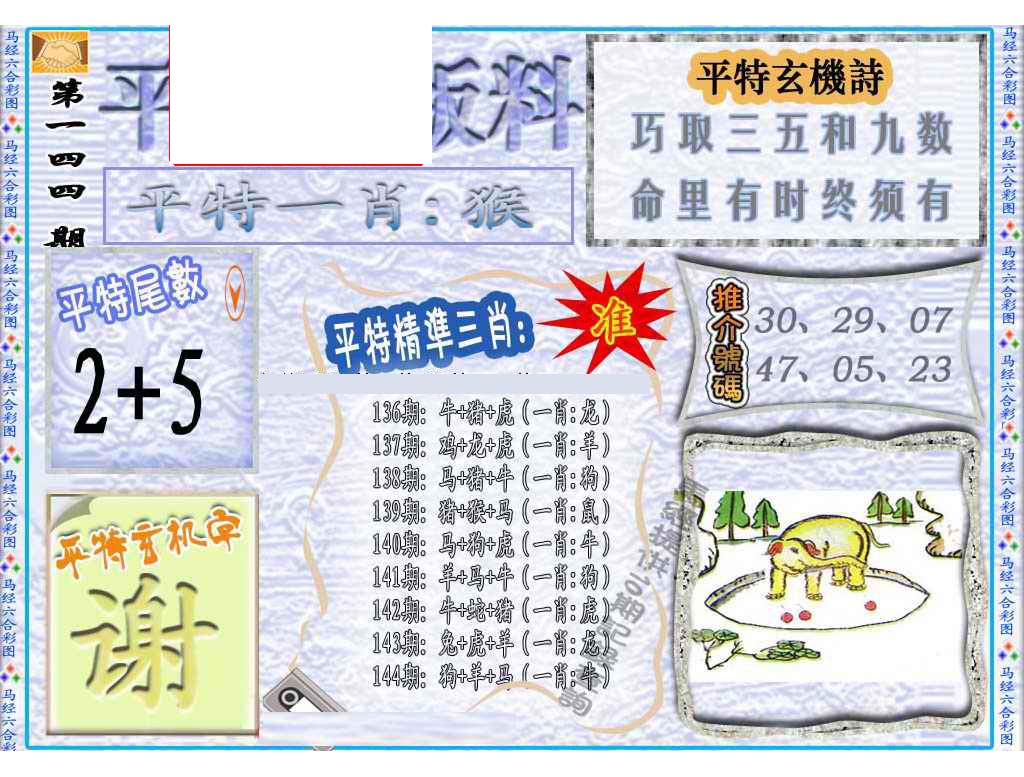 马经六合彩图
马经六合彩图
马经六合彩图
马经六合彩图
马经六合彩图
马经六合彩图
马经六合彩
第一四四期
平 版料
平特一肖:猴
平特玄機詩
巧取三五和九数
命里有时终须有
平特尾數
2+5
平特精準三肖:
准
136期: 牛+猪+虎(一肖:龙)
137期: 鸡+龙+虎(一肖:羊)
138期: 马+猪+牛(一肖:狗)
139期: 猪+猴+马(一肖:鼠)
140期: 马+狗+虎(一肖:牛)
141期: 羊+马+牛(一肖:狗)
142期: 牛+蛇+猪(一肖:虎)
143期: 兔+虎+羊(一肖:龙)
144期: 狗+羊+马(一肖:牛)
推介號碼
30、29、07
47、05、23
平特玄机字
谢
马经六合彩图
马经六合彩图
马经六合彩图
马经六合彩图
马经六合彩图
马经六合彩图
马经六合彩图